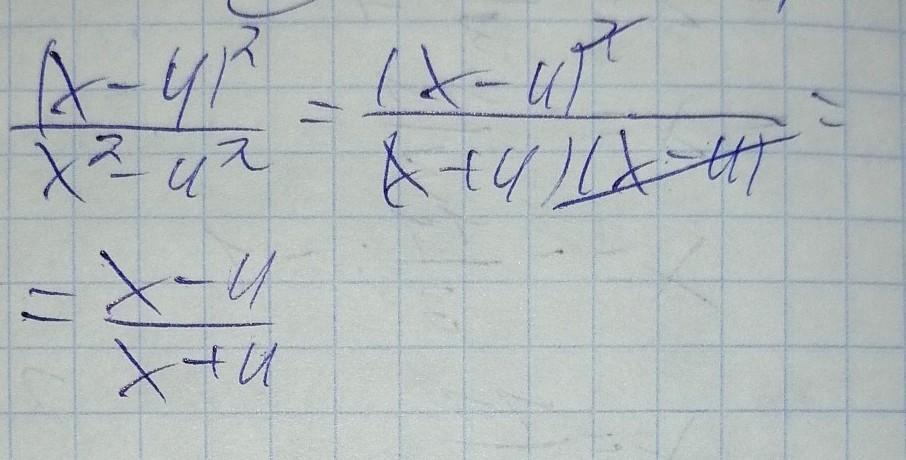 (x-y)²/(x²-y²) = (x-y)²/((x+y)(x-y)) =
= (x-y)/(x+y)